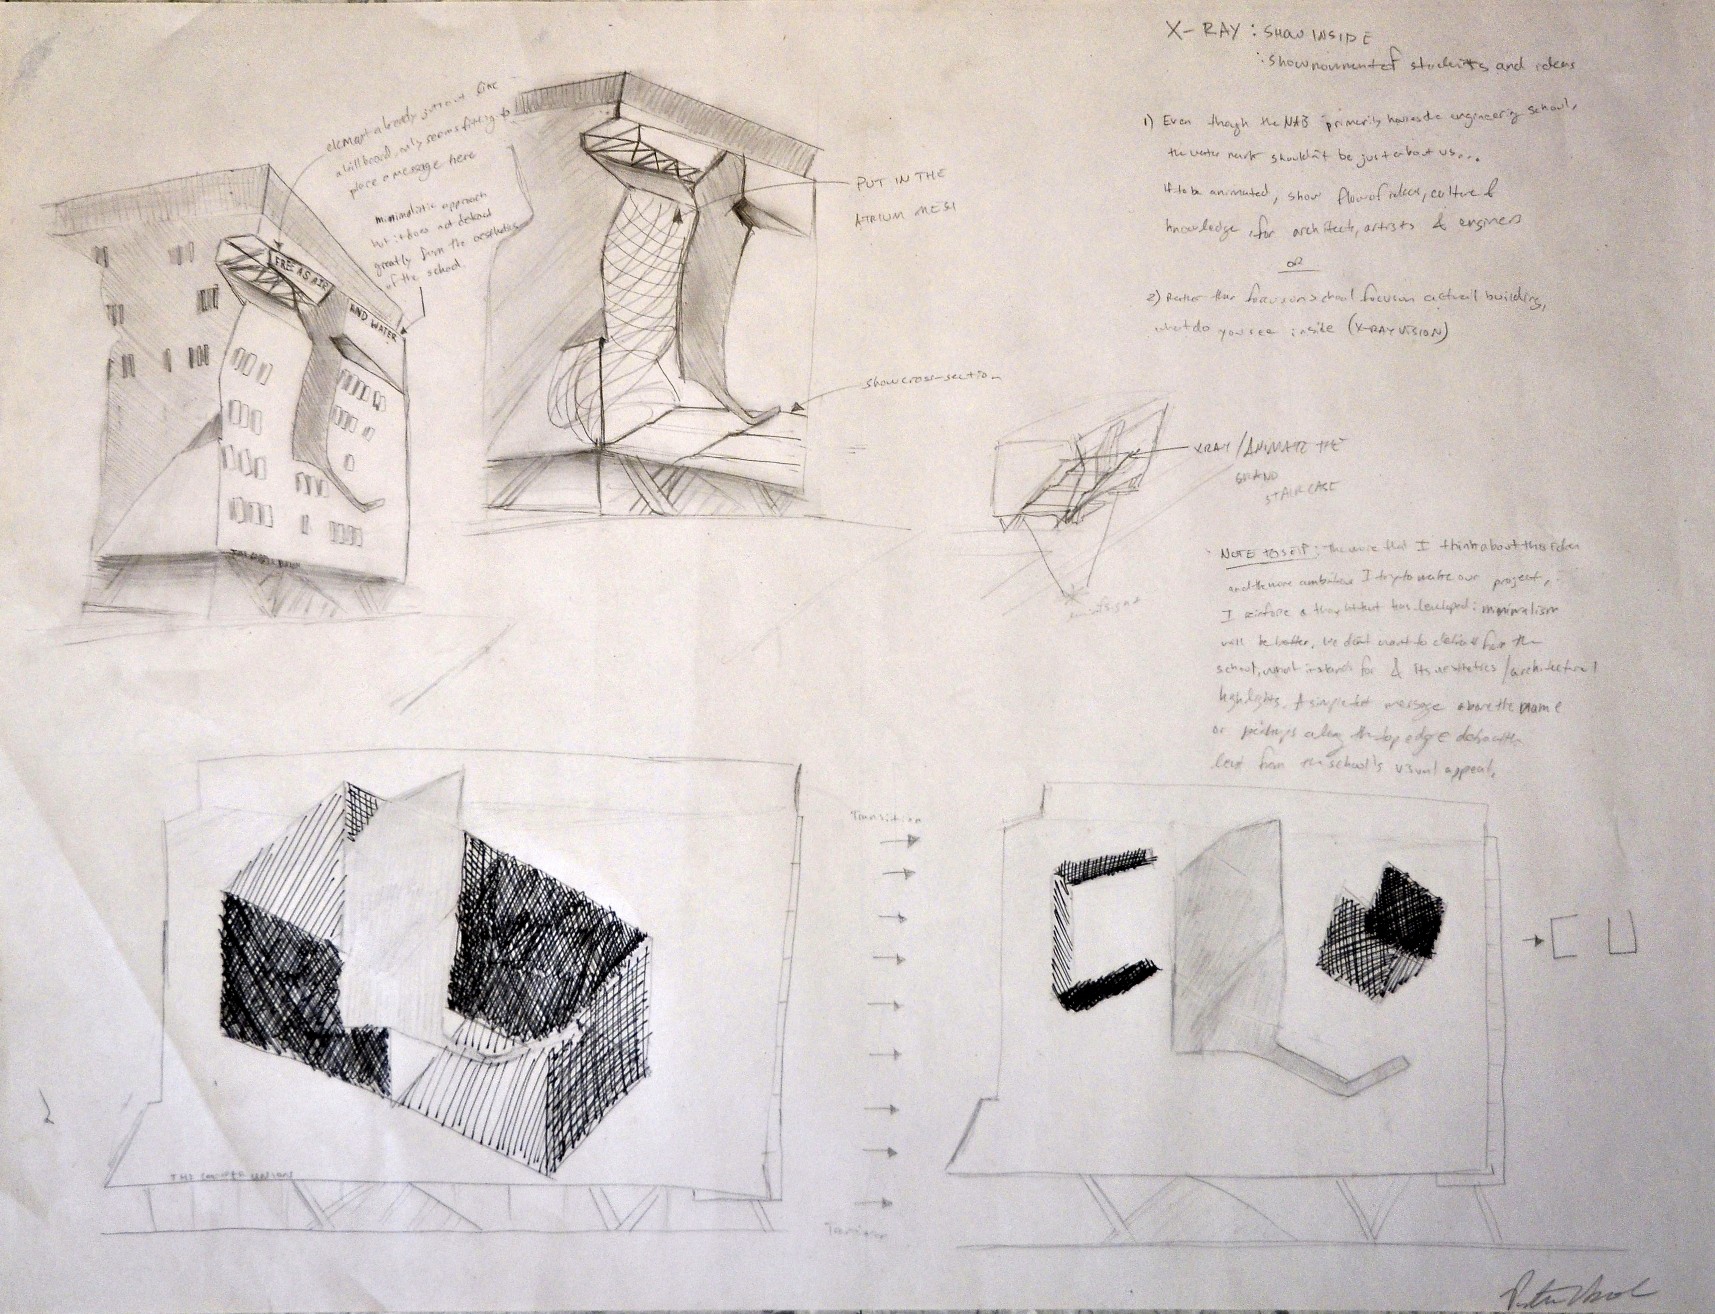 X-RAY : SHOW INSIDE
: show movement of students and ideas
1) Even though the NAB primarily houses the engineering school,
the water mark shouldn't be just about us...
If to be animated, show flow of ideas, culture &
knowledge, for architects, artists & engineers
or
2) Rather than focus on school focus on actuall building,
what do you see inside (X-RAY VISION)
element already juts out like
a billboard, only seems fitting to
place a message here
minimalistic approach
but it does not detract
greatly from the aesthetics
of the school.
FREE AS AIR
AND WATER
PUT IN THE
ATRIUM MESH
show cross-section
XRAY/ANIMATE THE
GRAND
STAIRCASE
NOTE TO SELF: The more that I think about this idea
and the more ambitious I try to make our project,
I reinforce a thought that has developed: minimalism
will be better. We don't want to detract from the
school, what it stands for & its aesthetics/architectural
highlights. A simple message above the name
or perhaps along the top edge detracts
least from the school's visual appeal.
Transition
C U
THE COOPER UNION